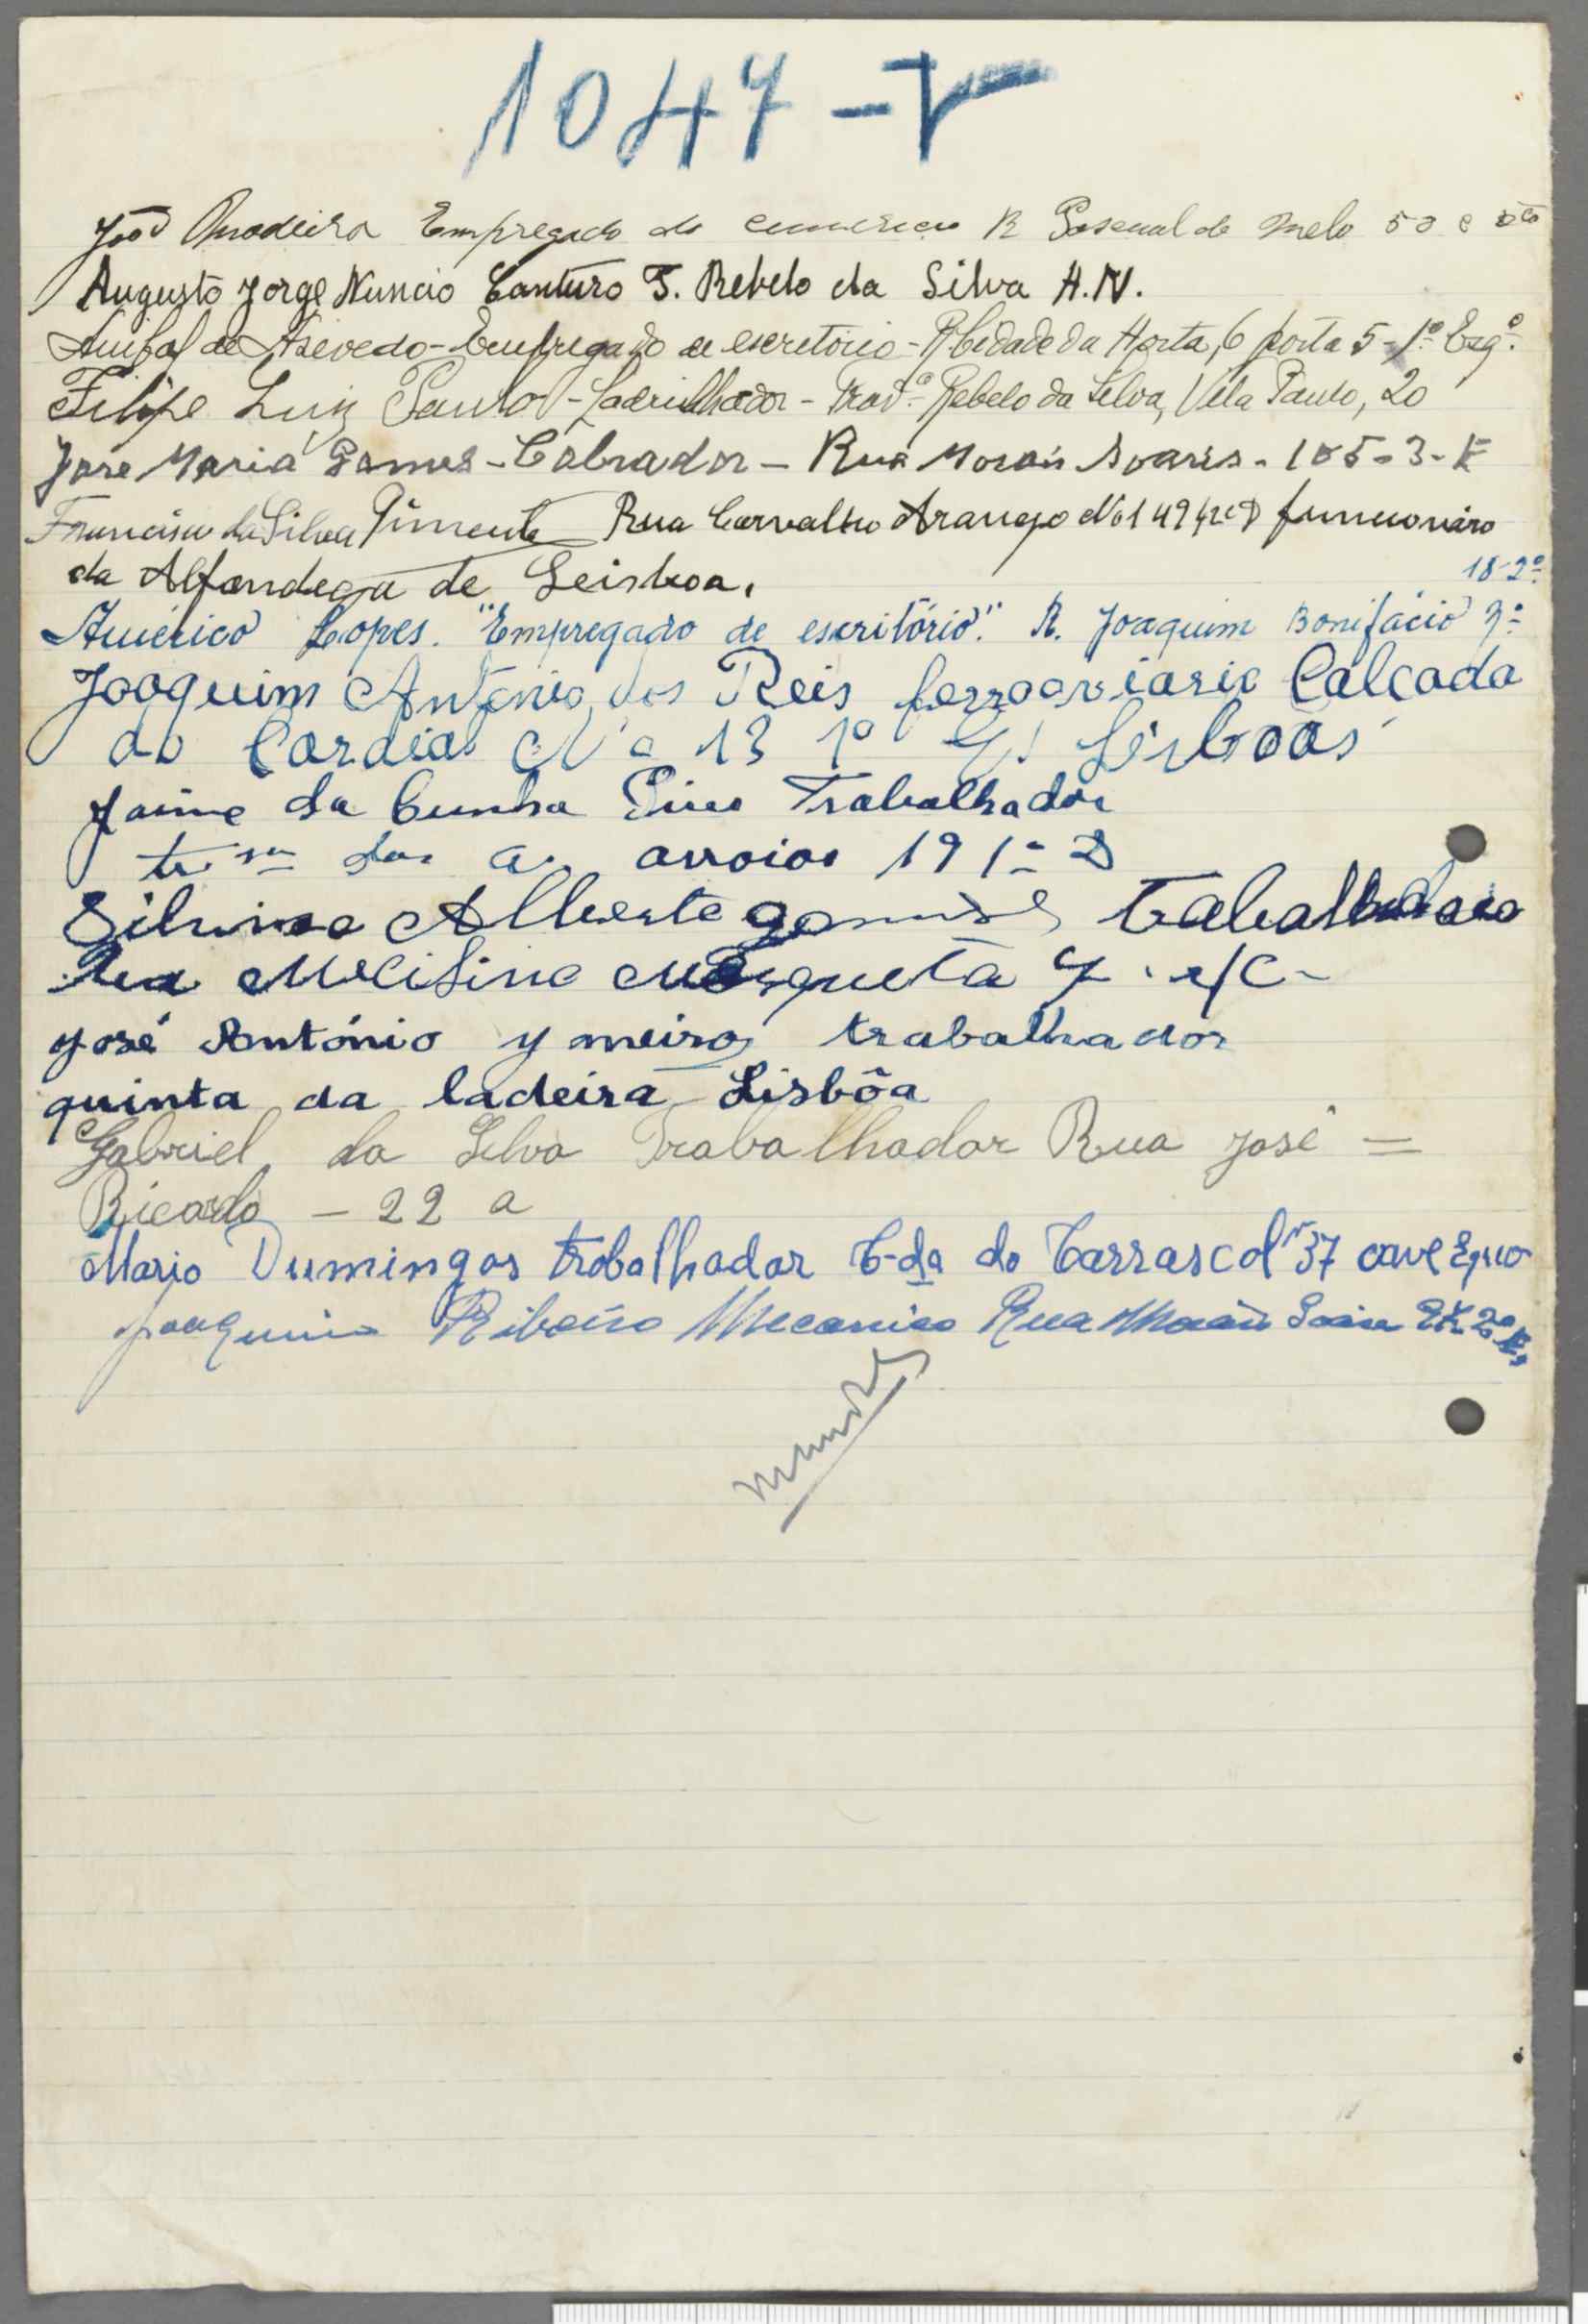 1047-V
João Madeira Empregado do comercio R Pascual de Melo 50
Augusto Jorge Nuncio Canturo T. Rebelo da Silva H.N.
Anibal de Azevedo - Empregado de escritório - R. Cidade da Horta, 6 porta 5 - 1º Esqº.
Filipe Luiz Paulo - Ladrilhador - Travª Rebelo da Silva, Vila Paulo, 20
José Maria Gomes - Cobrador - Rua Morais Soares - 105 - 3 - E
Francisco da Silva Pimenta Rua Carvalho Araujo Nº 149 funcionário
da Alfandega de Leisboa.
18-2º
Américo Lopes. "Empregado de escritório". R. Joaquim Bonifácio
Joaquim António dos Reis ferroaviario Calçada
do Cardial Nº 13 1º Lisboa
Jaime da Cunha Pires Trabalhador
arroios 19 1º D
Silvino Alberto
José António trabalhador
quinta da ladeira Lisbôa
Gabriel da Silva Trabalhador Rua José =
Ricardo - 22 a
Mario Dumingos trabalhador C-da do Carrascal 37 cave
Joaquim Ribeiro Mecanico Rua Morais Soares